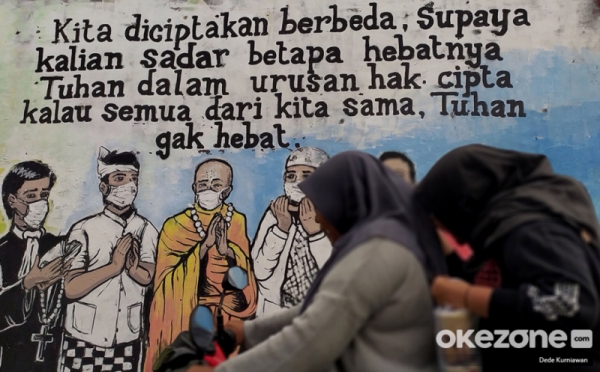 Kita diciptakan berbeda, Supaya
kalian sadar betapa hebatnya
Tuhan dalam urusan hak cipta
kalau semua dari kita sama, Tuhan
gak hebat.
okezone.com
Dede Kurniawan